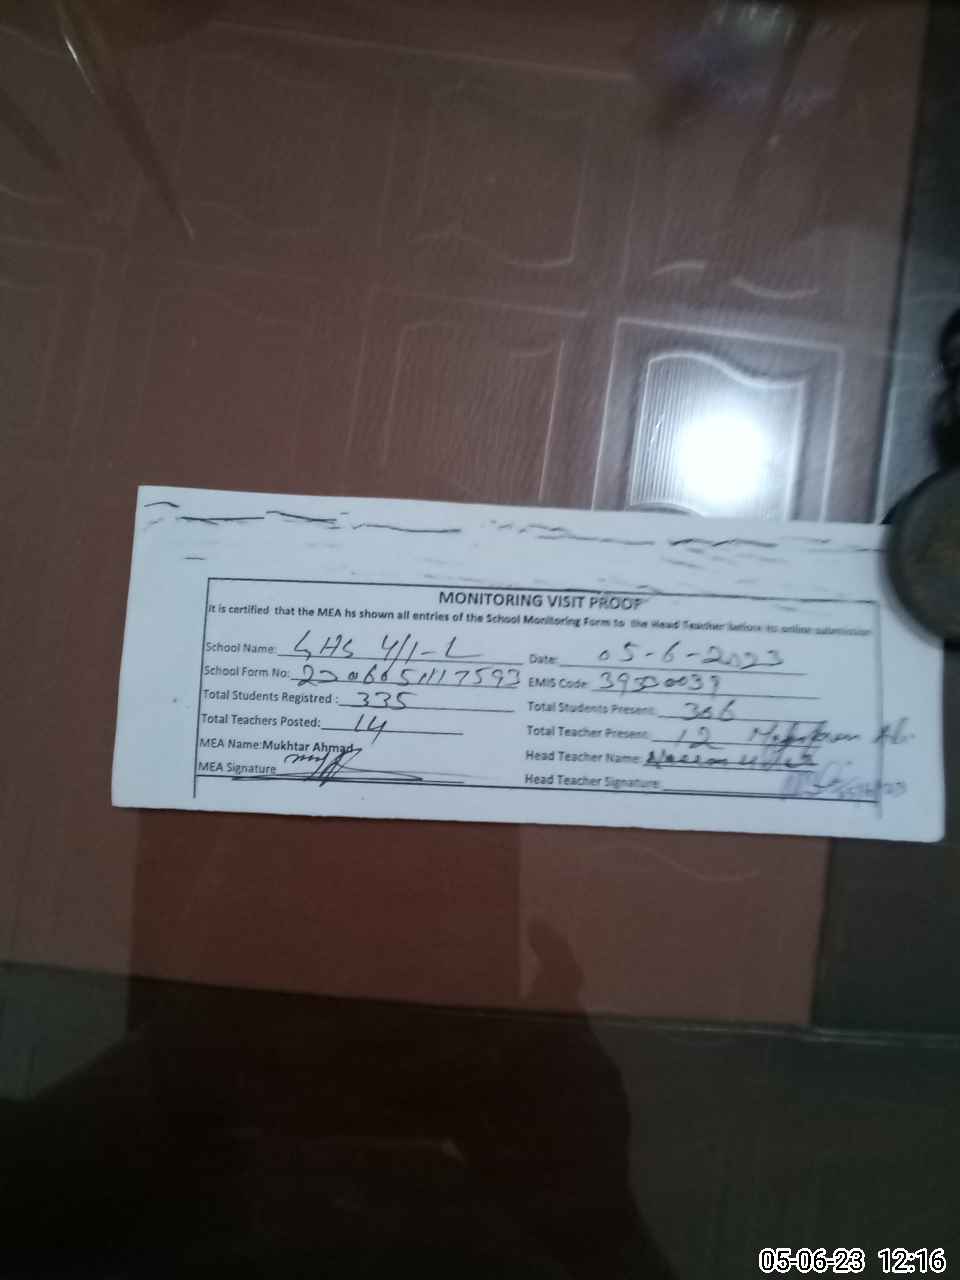 MONITORING VISIT PROOF
It is certified that the MEA hs shown all entries of the School Monitoring Form to the Head Teacher before its online submission
School Name: GHS 4/1-L Date: 05-6-2023
School Form No: EMIS Code: 39330039
Total Students Registered : 335 Total Students Present: 306
Total Teachers Posted: 14 Total Teacher Present: 12
MEA Name:Mukhtar Ahmad Head Teacher Name:
MEA Signature Head Teacher Signature:
05-06-23 12:16